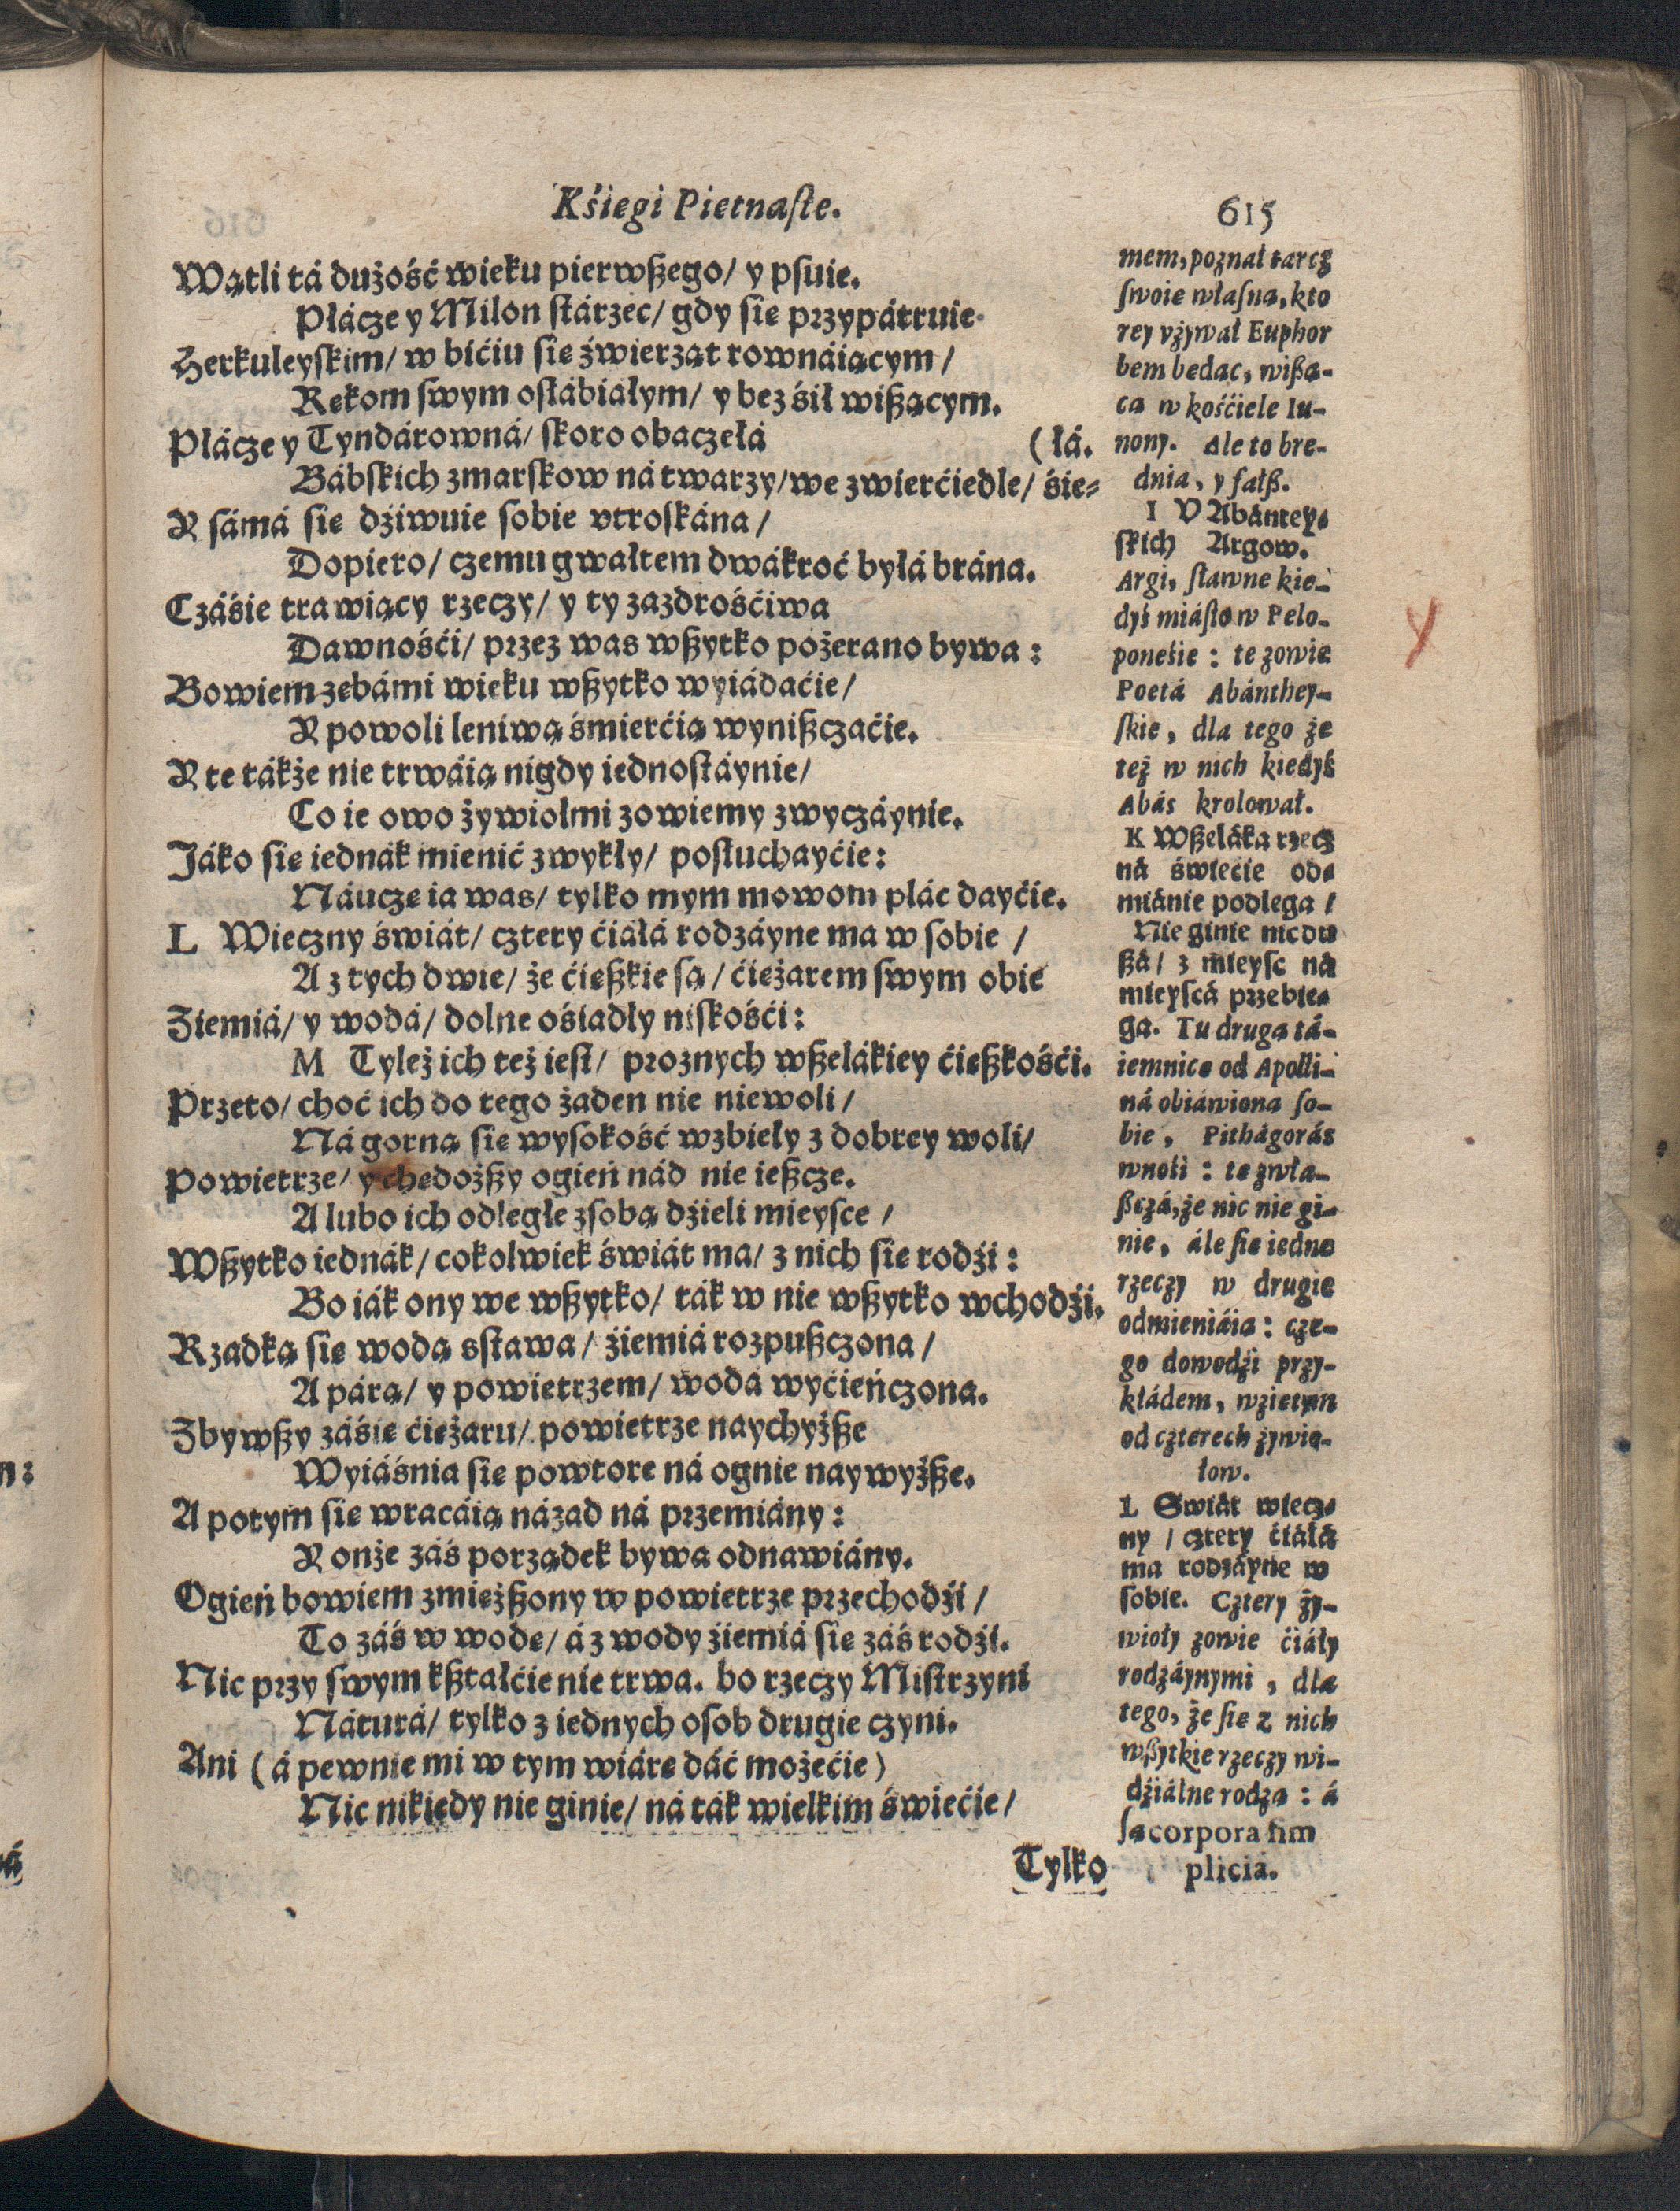 Kśiegi Pietnaſte.
615
Wątli tá dużość wieku pierwßego/ y pſuie.
Płácze y Milon ſtárzec/ gdy ſie przypátruie
Herkuleyſkim/ w bićiu ſie źwierząt rownáiącym/
Rękom ſwym oſłábiałym/ y bez śił wißącym.
Płácze y Tyndárowná/ ſkoro obaczełá
(łá.
Bábſkich zmarſkow ná twarzy/ we zwierćiedle/ śie-
Y ſámá ſie dźiwuie ſobie vtroſkána/
Dopiero/ czemu gwałtem dwákroć byłá brána.
Czáśie trawiący rzeczy/ y ty zazdrośćiwa
Dawnośći/ przez was wßytko pożerano bywa:
Bowiem zębámi wieku wßytko wyiádaćie/
Y powoli leniwą śmierćią wynißczaćie.
Y te tákże nie trwáią nigdy iednoſtáynie/
Co ie owo żywiołmi zowiemy zwyczáynie.
Jáko ſie iednák mienić zwykły/ poſłuchayćie:
Náuczę ia was/ tylko mym mowom plác dayćie.
L Wieczny świát/ cztery ćiáłá rodzáyne ma w ſobie/
A z tych dwie/ że ćięßkie ſą/ ćiężarem ſwym obie
Ziemiá/ y wodá/ dolne ośiadły niſkośći:
M Tyleż ich też ieſt/ prożnych wßelákiey ćięßkośći.
Przeto/ choć ich do tego żaden nie niewoli/
Ná gorną ſie wyſokość wzbieły z dobrey woli/
Powietrze/ y chędożßy ogień nád nie ießcze.
A lubo ich odległe z ſobą dźieli mieyſce/
Wßytko iednák/ cokolwiek świát ma/ z nich ſie rodźi:
Bo iák ony we wßytko/ ták w nie wßytko wchodźi.
Rzadką ſie wodą sſtawa/ źiemiá rozpußczona/
A párą/ y powietrzem/ wodá wyćieńczona.
Zbywßy záśie ćiężaru/ powietrze naychyżße
Wyiáśnia ſie powtore ná ognie naywyżße.
A potym ſie wracáią názad ná przemiány:
Y onże záś porządek bywa odnawiány.
Ogień bowiem zmięźßony w powietrze przechodźi/
To záś w wodę/ á z wody źiemiá ſie záś rodźi.
Nic przy ſwym kßtałćie nie trwa. bo rzeczy Miſtrzyni
Náturá/ tylko z iednych oſob drugie czyni.
Ani (á pewnie mi w tym wiárę dáć możećie)
Nic nikiedy nie ginie/ ná ták wielkim świećie/
Tylko
mem, poznał tarcz
ſwoie właſną, kto
rey vżywał Euphor
bem bedąc, wißą-
cą w kośćiele Iu-
nony. Ale to bre-
dnia, y fałß.
I V Abántey-
ſkich Argow.
Argi, ſławne kie-
dyś miáſto w Pelo-
poneśie: te zowie
Poetá Abánthey-
ſkie, dla tego że
też w nich kiedyś
Abás krolował.
K Wßeláka rzecz
ná świećie od-
miánie podlega/
Nie ginie nic du
ßá/ z mieyſc ná
mieyſcá przebie-
ga. Tu druga tá-
iemnicę od Apolli-
ná obiáwiona ſo-
bie, Pithágorás
wnośi: te zwła-
ßczá, że nic nie gi-
nie, ále ſie iedne
rzeczy w drugie
odmieniáią: cze-
go dowodźi przy-
kłádem, wziętym
od czterech żywio-
łow.
L Swiát wiecz-
ny/ cztery ćiáłá
ma rodzáyne w
ſobie. Cztery ży-
wioły zowie ćiáły
rodzáynymi, dla
tego, że ſie z nich
wßytkie rzeczy wi-
dźiálne rodzą: á
ſą corpora ſim
plicia.